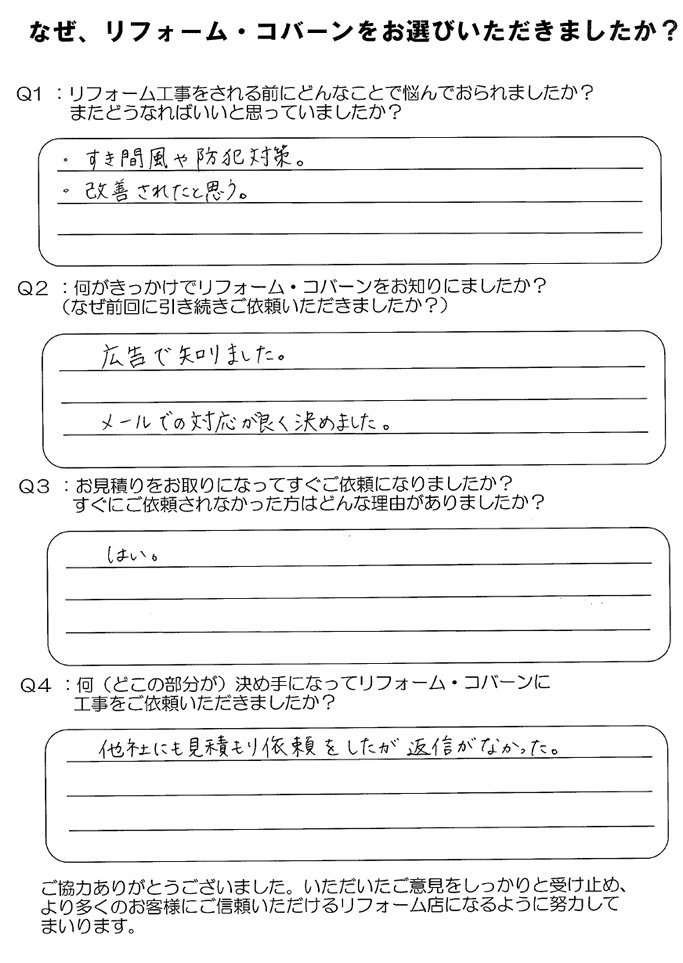 なぜ、リフォーム・コバーンをお選びいただきましたか？
Q1 ：リフォーム工事をされる前にどんなことで悩んでおられましたか？
またどうなればいいと思っていましたか？
・すき間風や防犯対策。
・改善されたと思う。
Q2 ：何がきっかけでリフォーム・コバーンをお知りにましたか？
（なぜ前回に引き続きご依頼いただきましたか？）
広告で知りました。
メールでの対応が良く決めました。
Q3 ：お見積りをお取りになってすぐご依頼になりましたか？
すぐにご依頼されなかった方はどんな理由がありましたか？
はい。
Q4 ：何（どこの部分が）決め手になってリフォーム・コバーンに
工事をご依頼いただきましたか？
他社にも見積もり依頼をしたが返信がなかった。
ご協力ありがとうございました。いただいたご意見をしっかりと受け止め、
より多くのお客様にご信頼いただけるリフォーム店になるように努力して
まいります。